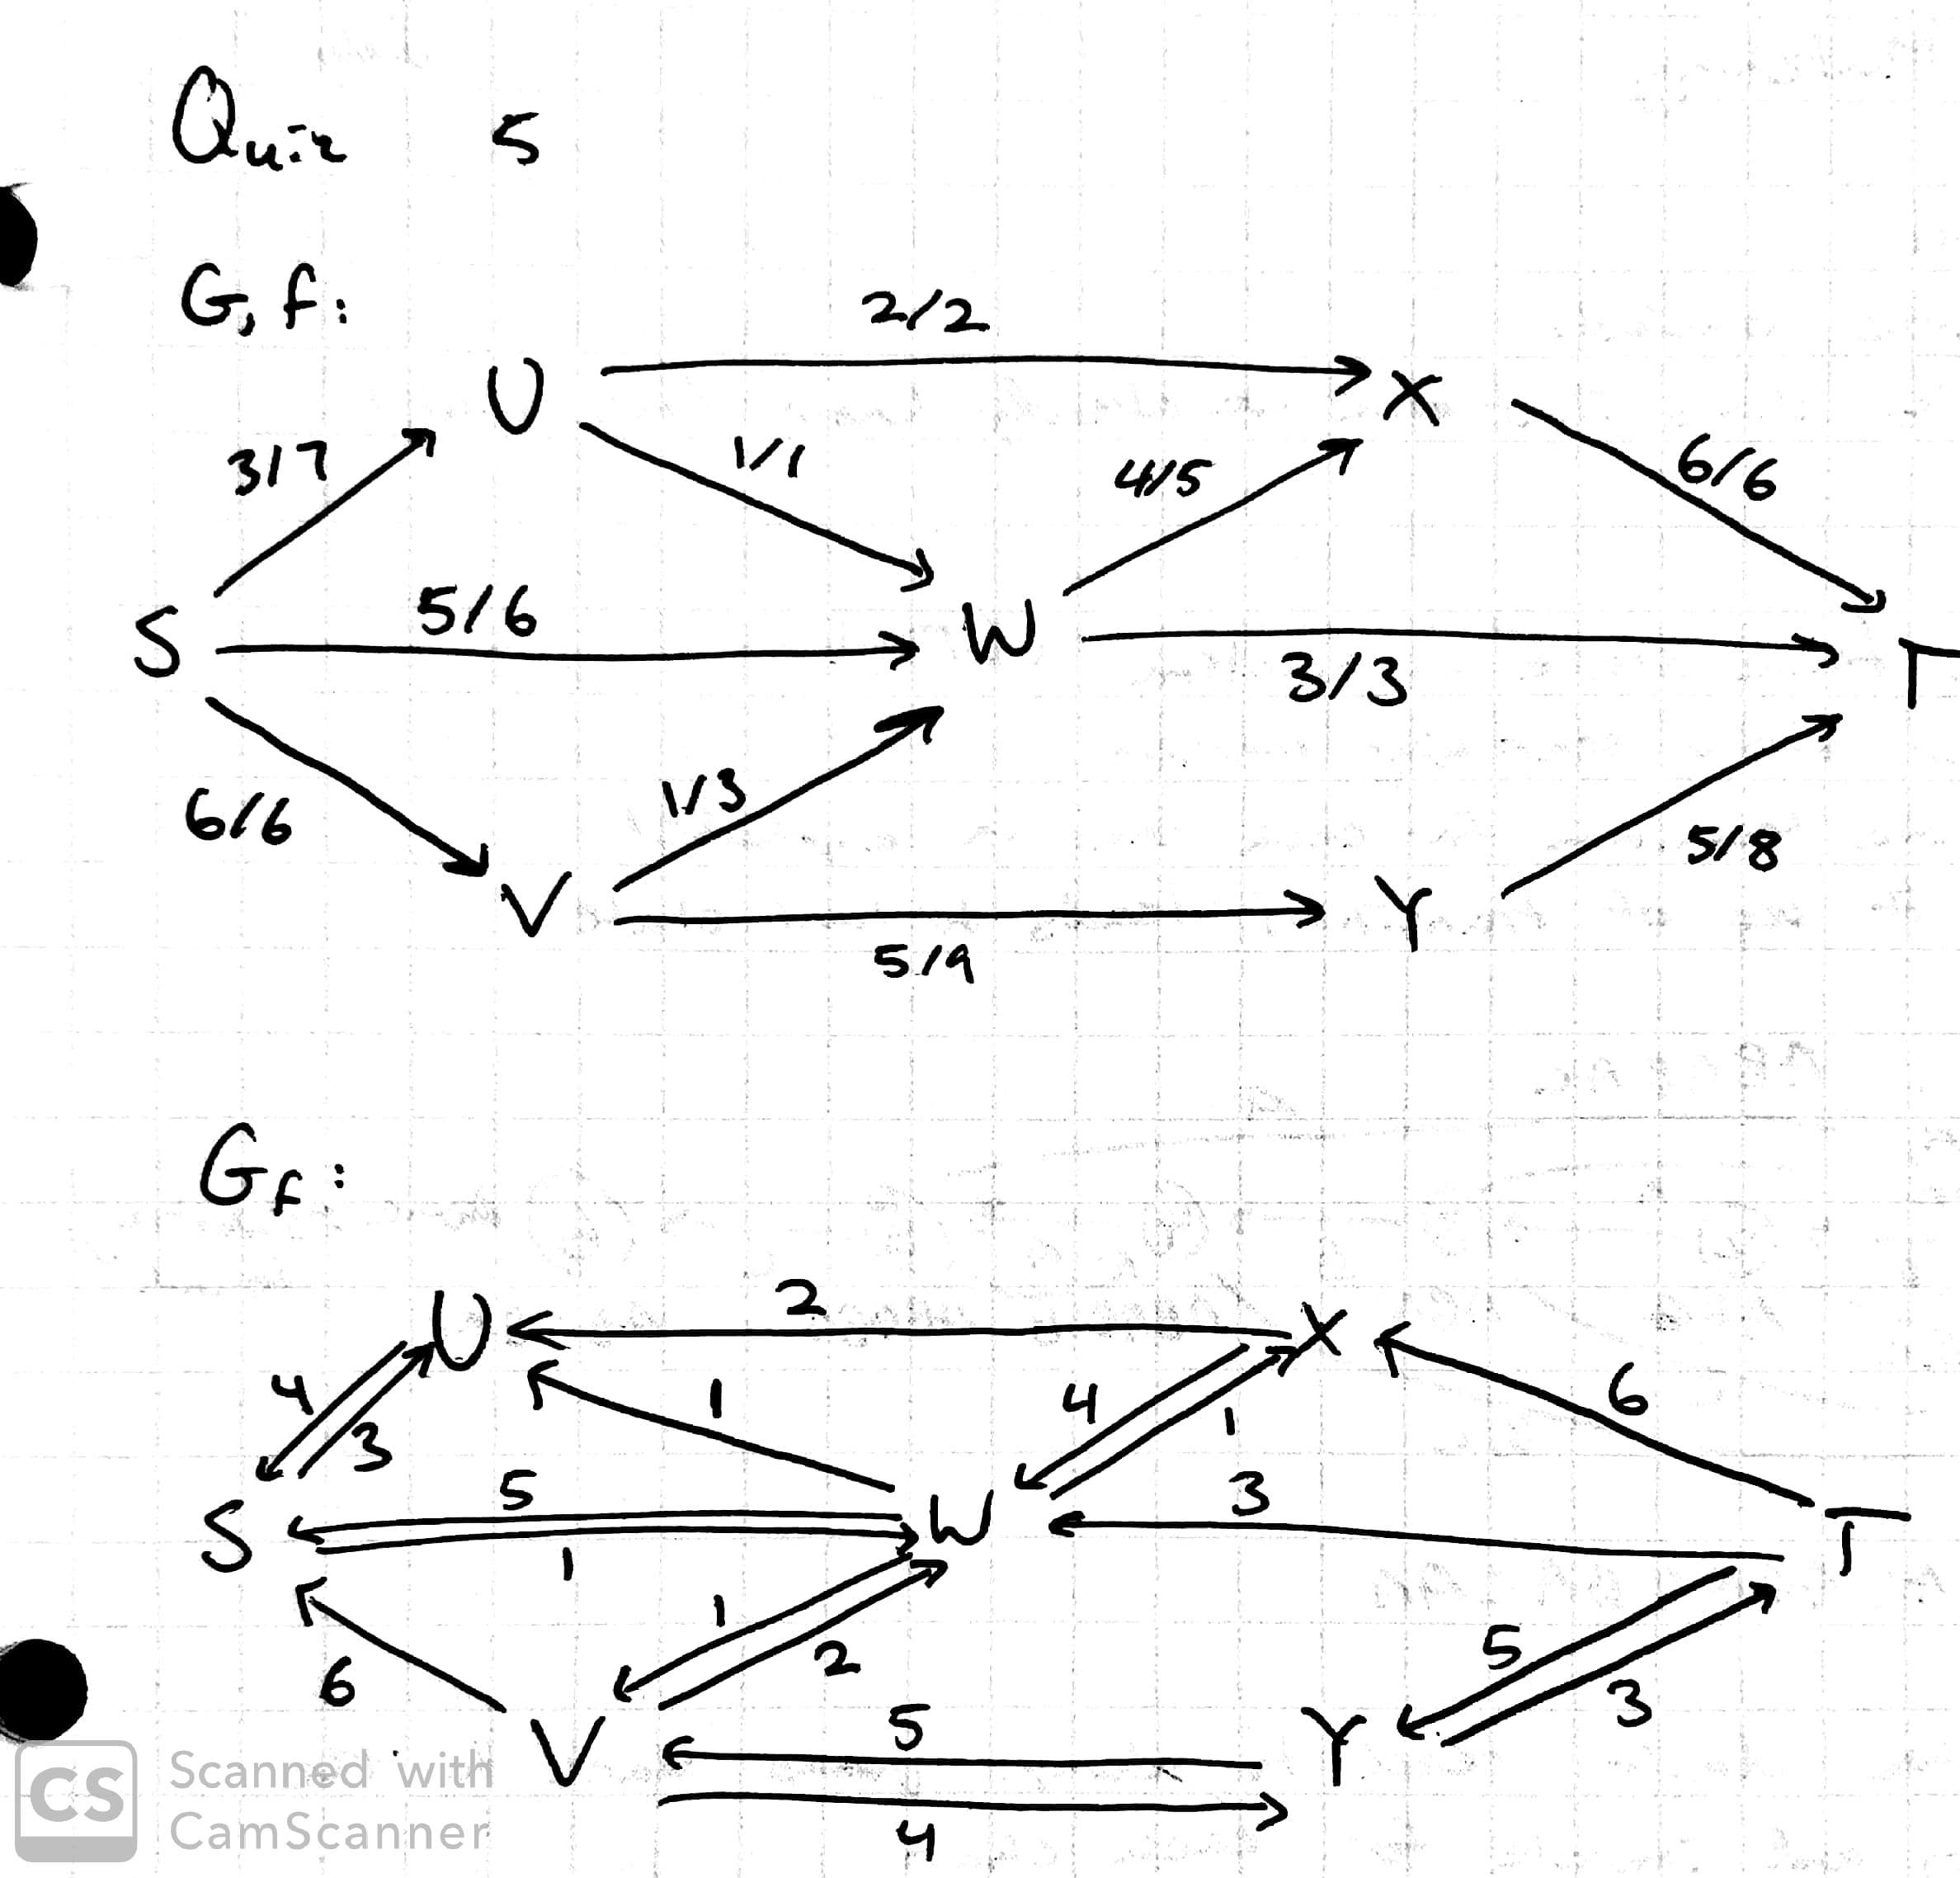 Quiz 5
G, f:
2/2
U X
3/7 1/1 4/5 6/6
5/6
S W T
3/3
6/6 1/3 5/8
V Y
5/9
Gf:
2
U X
4 3 1 4 1 6
5 3
S W T
1
6 1 2 5 3
5
V Y
4
CS Scanned with
CamScanner